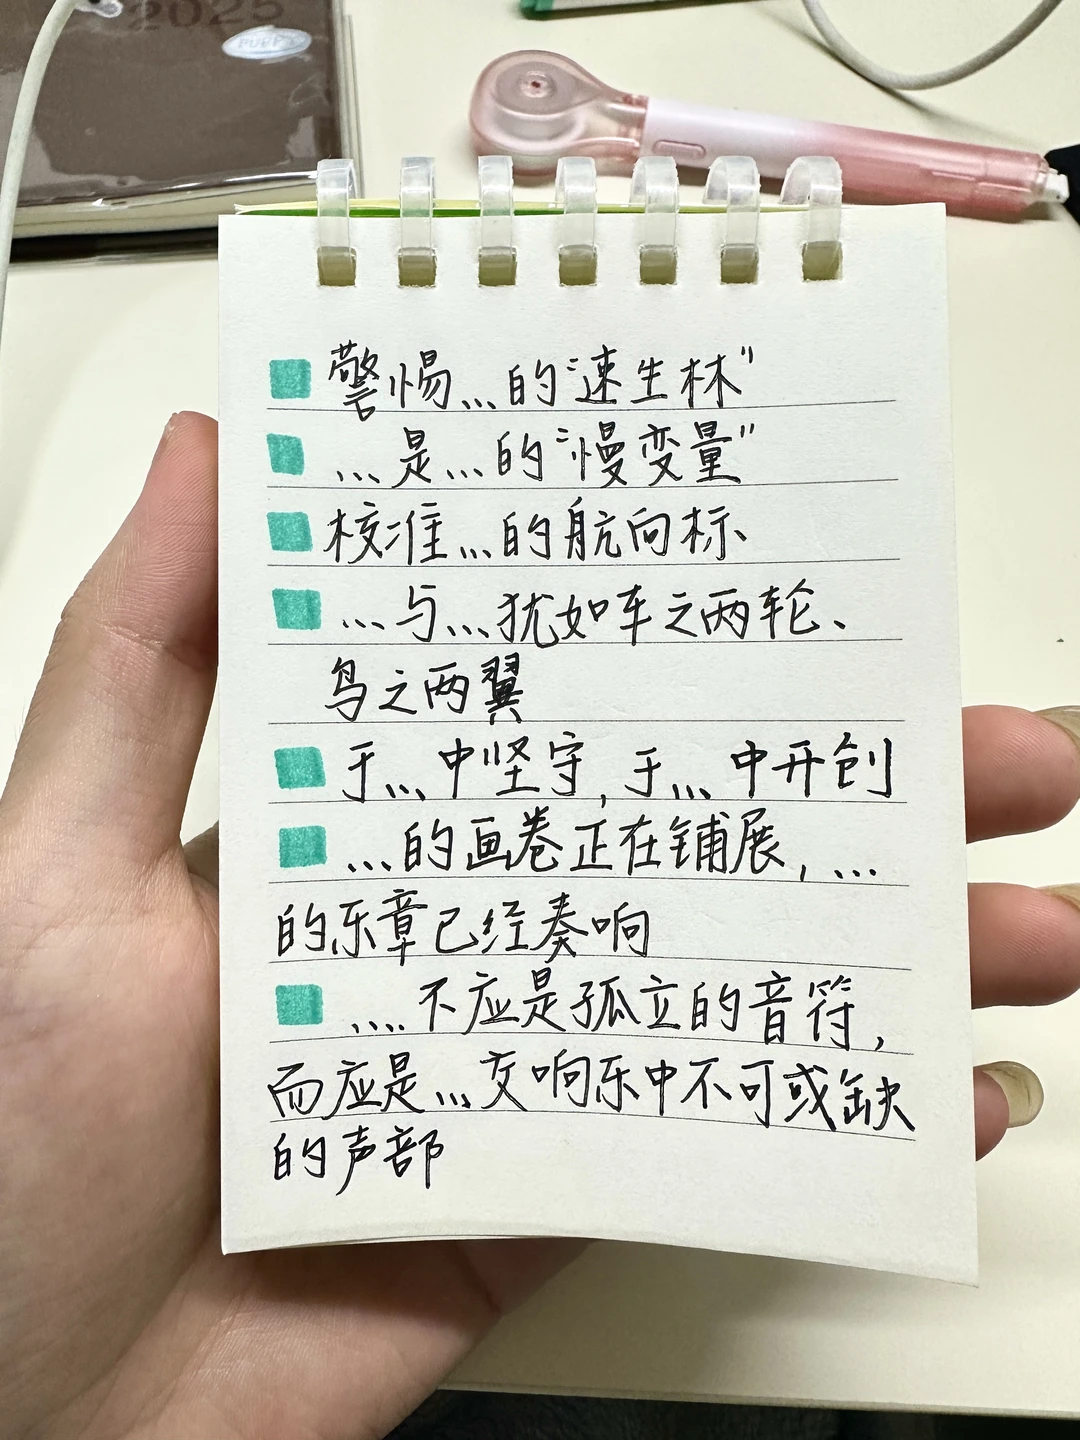 2025
PUPPY
警惕...的“速生林”
...是...的“慢变量”
校准...的航向标
...与...犹如车之两轮、
鸟之两翼
于...中坚守,于...中开创
...的画卷正在铺展,...
的乐章已经奏响
....不应是孤立的音符,
而应是...交响乐中不可或缺
的声部